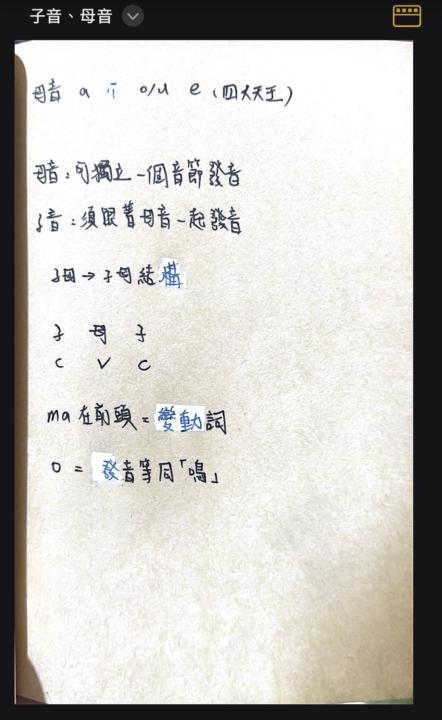 子音、母音
母音 a i o/u e (四大天王)
母音:可獨立一個音節發音
子音:須跟著母音一起發音
子母→子母結構
子 母 子
C V C
ma在前頭=變動詞
o = 發音等同「嗚」